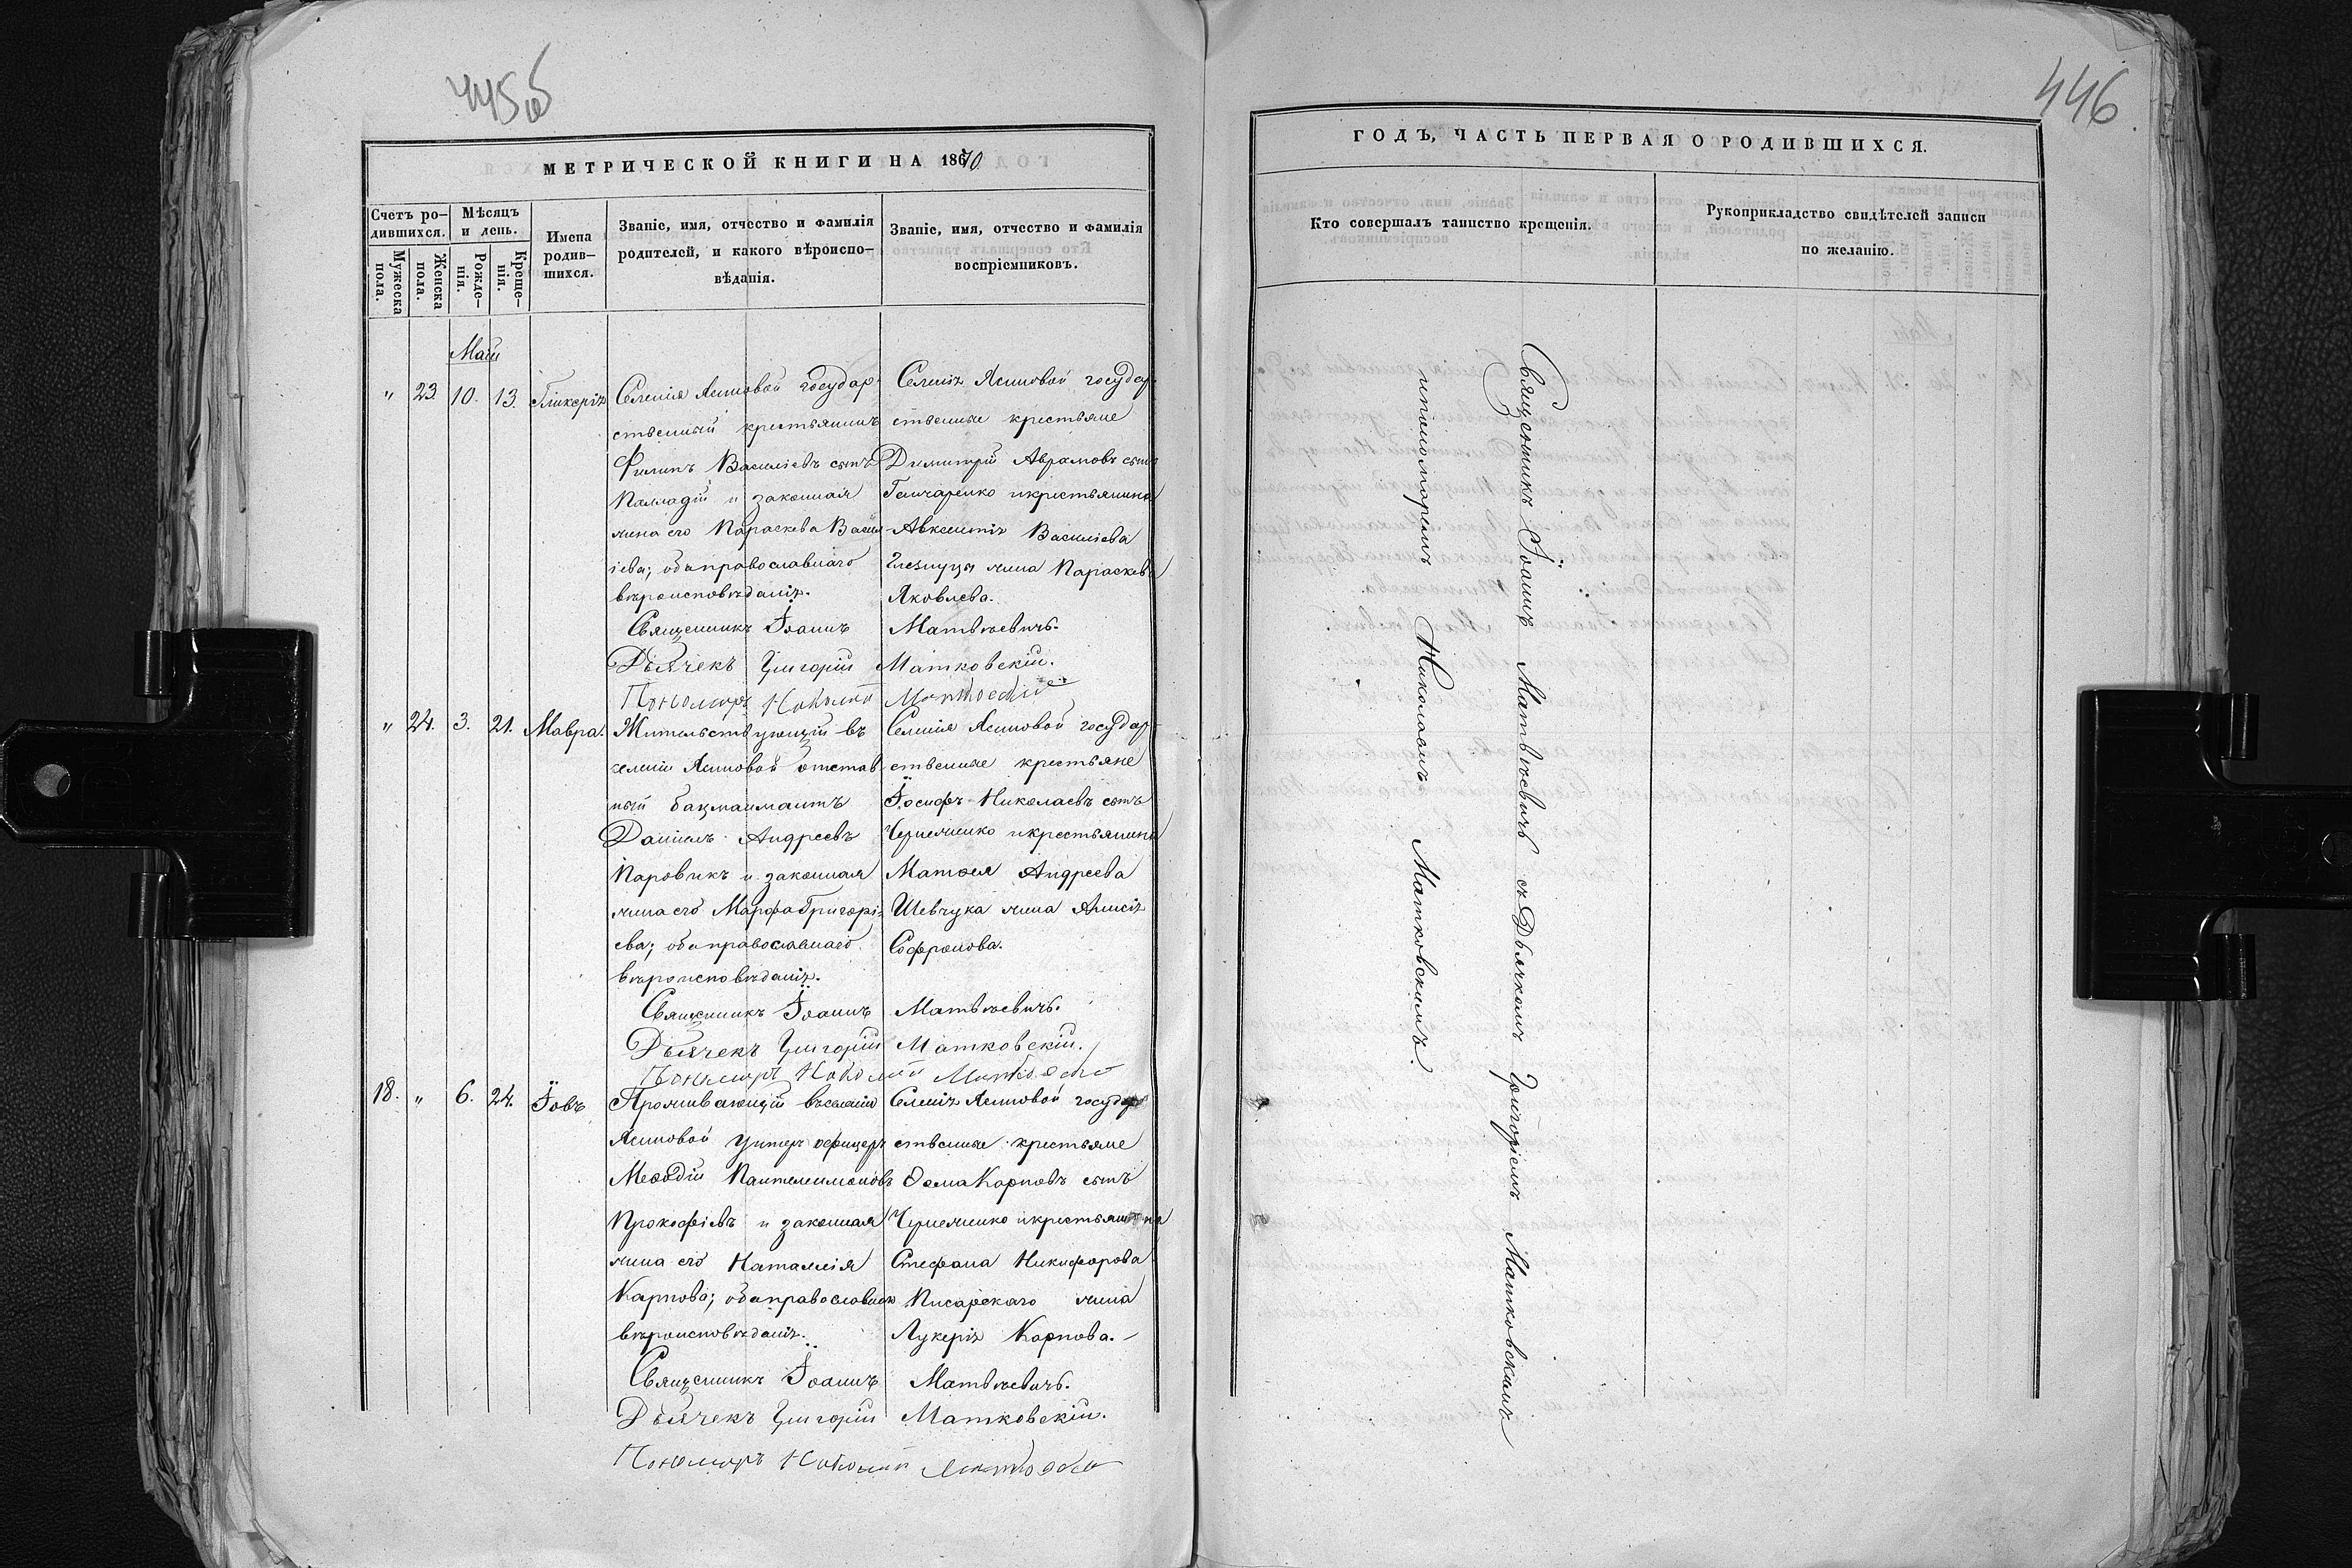 445об
МЕТРИЧЕСКОЙ КНИГИ НА 1870.
Счетъ ро-
дившихся.
Мужеска
пола.
Женска
пола.
Мѣсяцъ
и день.
Рожде-
нія.
Креще-
нія.
Имена
родив-
шихся.
Званіе, имя, отчество и фамилія
родителей, и какого вѣроиспо-
вѣданія.
Званіе, имя, отчество и фамилія
воспріемниковъ.
Маій
„ 23. 10. 13. Гликерія
Селенія Ясиновой государ-
ственный крестьянинъ
Филипъ Василіевъ сынъ
Палладій и законная
жена его Параскева Васи-
ліева; оба православнаго
вѣроисповѣданія.
Селенія Ясиновой государ-
ственные крестьяне
Димитрій Аврамовъ сынъ
Гончаренко и крестьянина
Авксентія Василіева
жена Параскева
Яковлева.
Священникъ Іоаннъ Матвѣевичъ.
Дьячекъ Григорій Матковскій.
Пономаръ Николай Матковскій
„ 24. 3. 21. Мавра.
Жительствующій въ
селеніи Ясиновой отстав
ный
Даніилъ Андреевъ
Паровикъ и законная
жена его Марфа Григорі-
ева; оба православнаго
вѣроисповѣданія.
Селенія Ясиновой государ-
ственные крестьяне
Іосифъ Николаевъ сынъ
и крестьянина
Матѳея Андреева
Шевчука жена Анисія
Софронова.
Священникъ Іоаннъ Матвѣевичъ.
Дьячекъ Григорій Матковскій.
Пономаръ Николай Матковскій
18. „ 6. 24. Іовъ
Проживающій въ селеніи
Ясиновой унтеръ офицеръ
Меѳодій Пантелеимоновъ
Прокофіевъ и законная
жена его Наталлія
Карпова; оба православнаго
вѣроисповѣданія.
Селенія Ясиновой государ
ственные крестьяне
Ѳома Карповъ сынъ
и крестьянина
Стефана Никифорова
Писарскаго жена
Лукерія Карпова.
Священникъ Іоаннъ Матвѣевичъ.
Дьячекъ Григорій Матковскій.
Пономаръ Николай Матковскій
446
ГОДЪ, ЧАСТЬ ПЕРВАЯ О РОДИВШИХСЯ.
Кто совершалъ таинство крещенія.
Рукоприкладство свидѣтелей записи
по желанію.
Священникъ Іоаннъ Матвѣевичъ съ Дьячкомъ Григоріемъ Матковскимъ
и пономаремъ Николаемъ Матковскимъ.